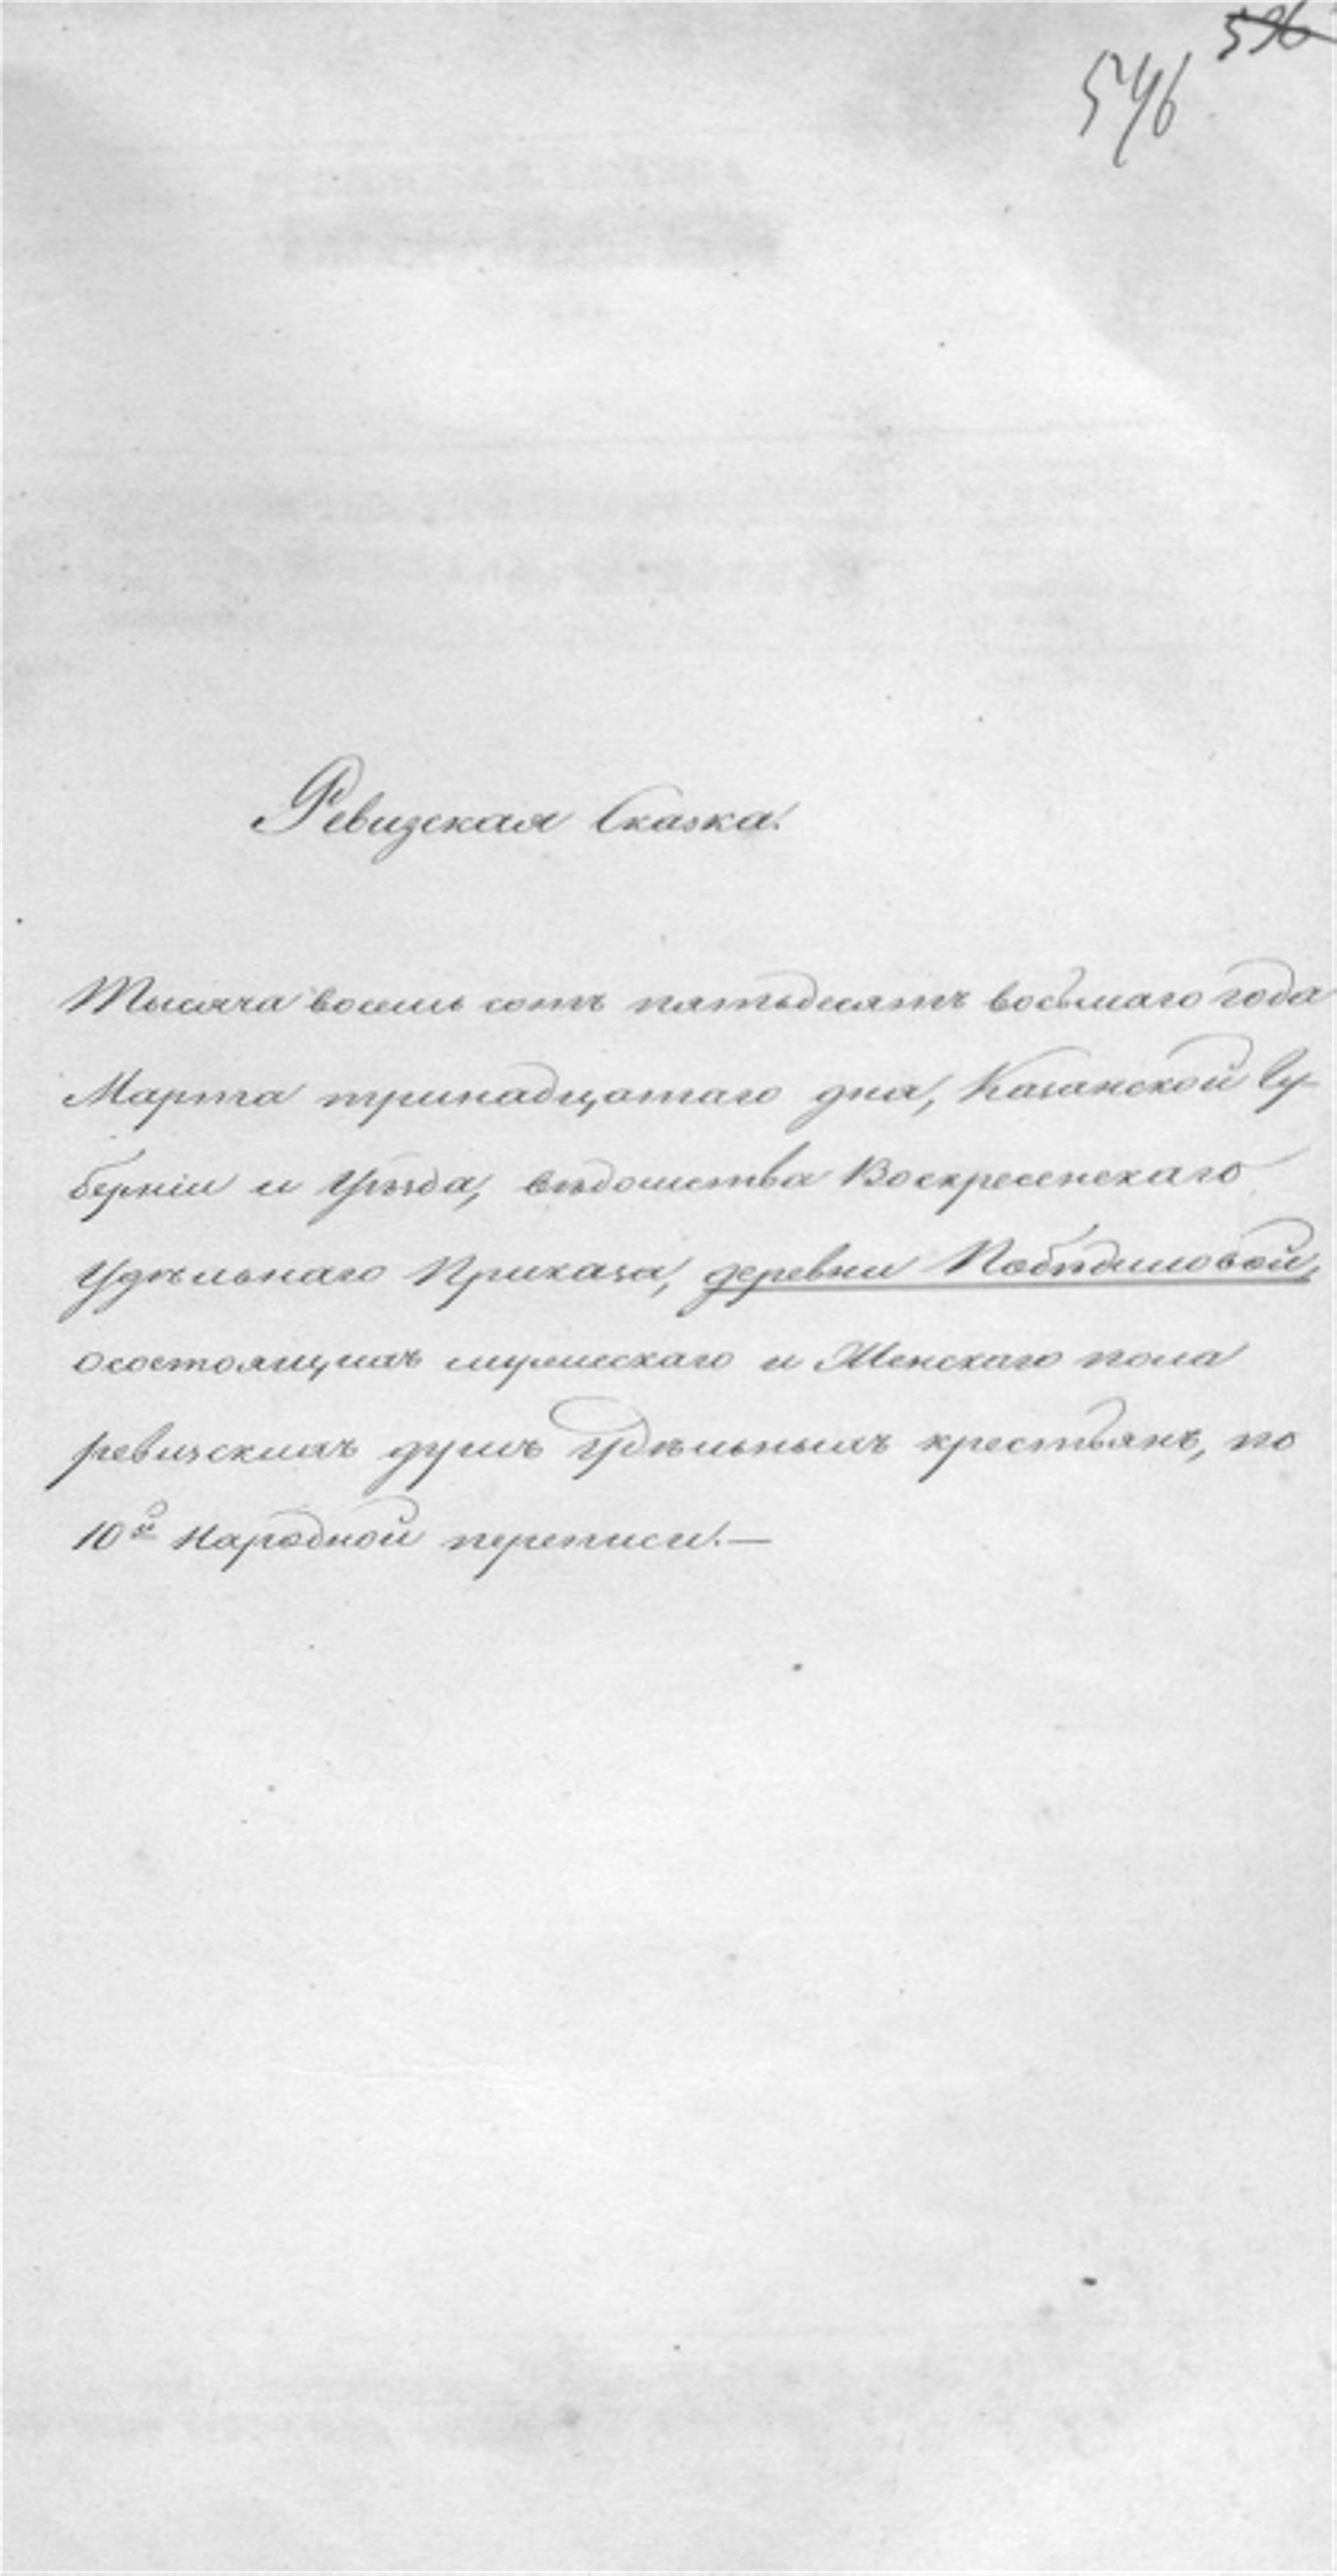 546
Ревизская Сказка.
Тысяча восемь сотъ пятьдесятъ восьмаго года
Марта тринадцатаго дня, Казанской Гу-
берніи и Уѣзда, вѣдомства Воскресенскаго
Удѣльнаго Приказа, деревни Побѣдиловой,
осостоящихъ мужескаго и Женскаго пола
ревизскихъ душъ удѣльныхъ крестьянъ, по
10й Народной переписи.—